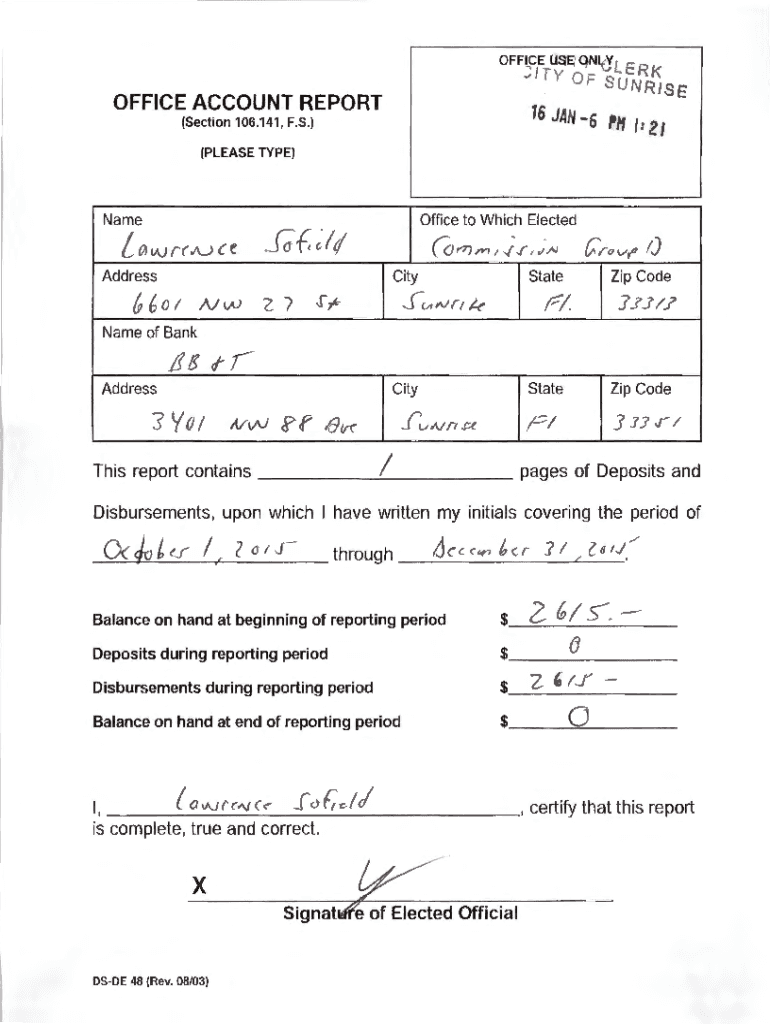 OFFICE USE ONLY
CLERK
CITY OF SUNRISE
16 JAN -6 PM 1:21
OFFICE ACCOUNT REPORT
(Section 106.141, F.S.)
(PLEASE TYPE)
Name Office to Which Elected
Lawrence Sofield Commission Group D
Address City State Zip Code
6601 NW 27 St Sunrise Fl. 33313
Name of Bank
BB & T
Address City State Zip Code
3401 NW 88 Ave Sunrise Fl 33351
This report contains 1 pages of Deposits and
Disbursements, upon which I have written my initials covering the period of
October 1, 2015 through December 31, 2015.
Balance on hand at beginning of reporting period $ 2615.-
Deposits during reporting period $ 0
Disbursements during reporting period $ 2615 -
Balance on hand at end of reporting period $ 0
I, Lawrence Sofield, certify that this report
is complete, true and correct.
X
Signature of Elected Official
DS-DE 48 (Rev. 08/03)